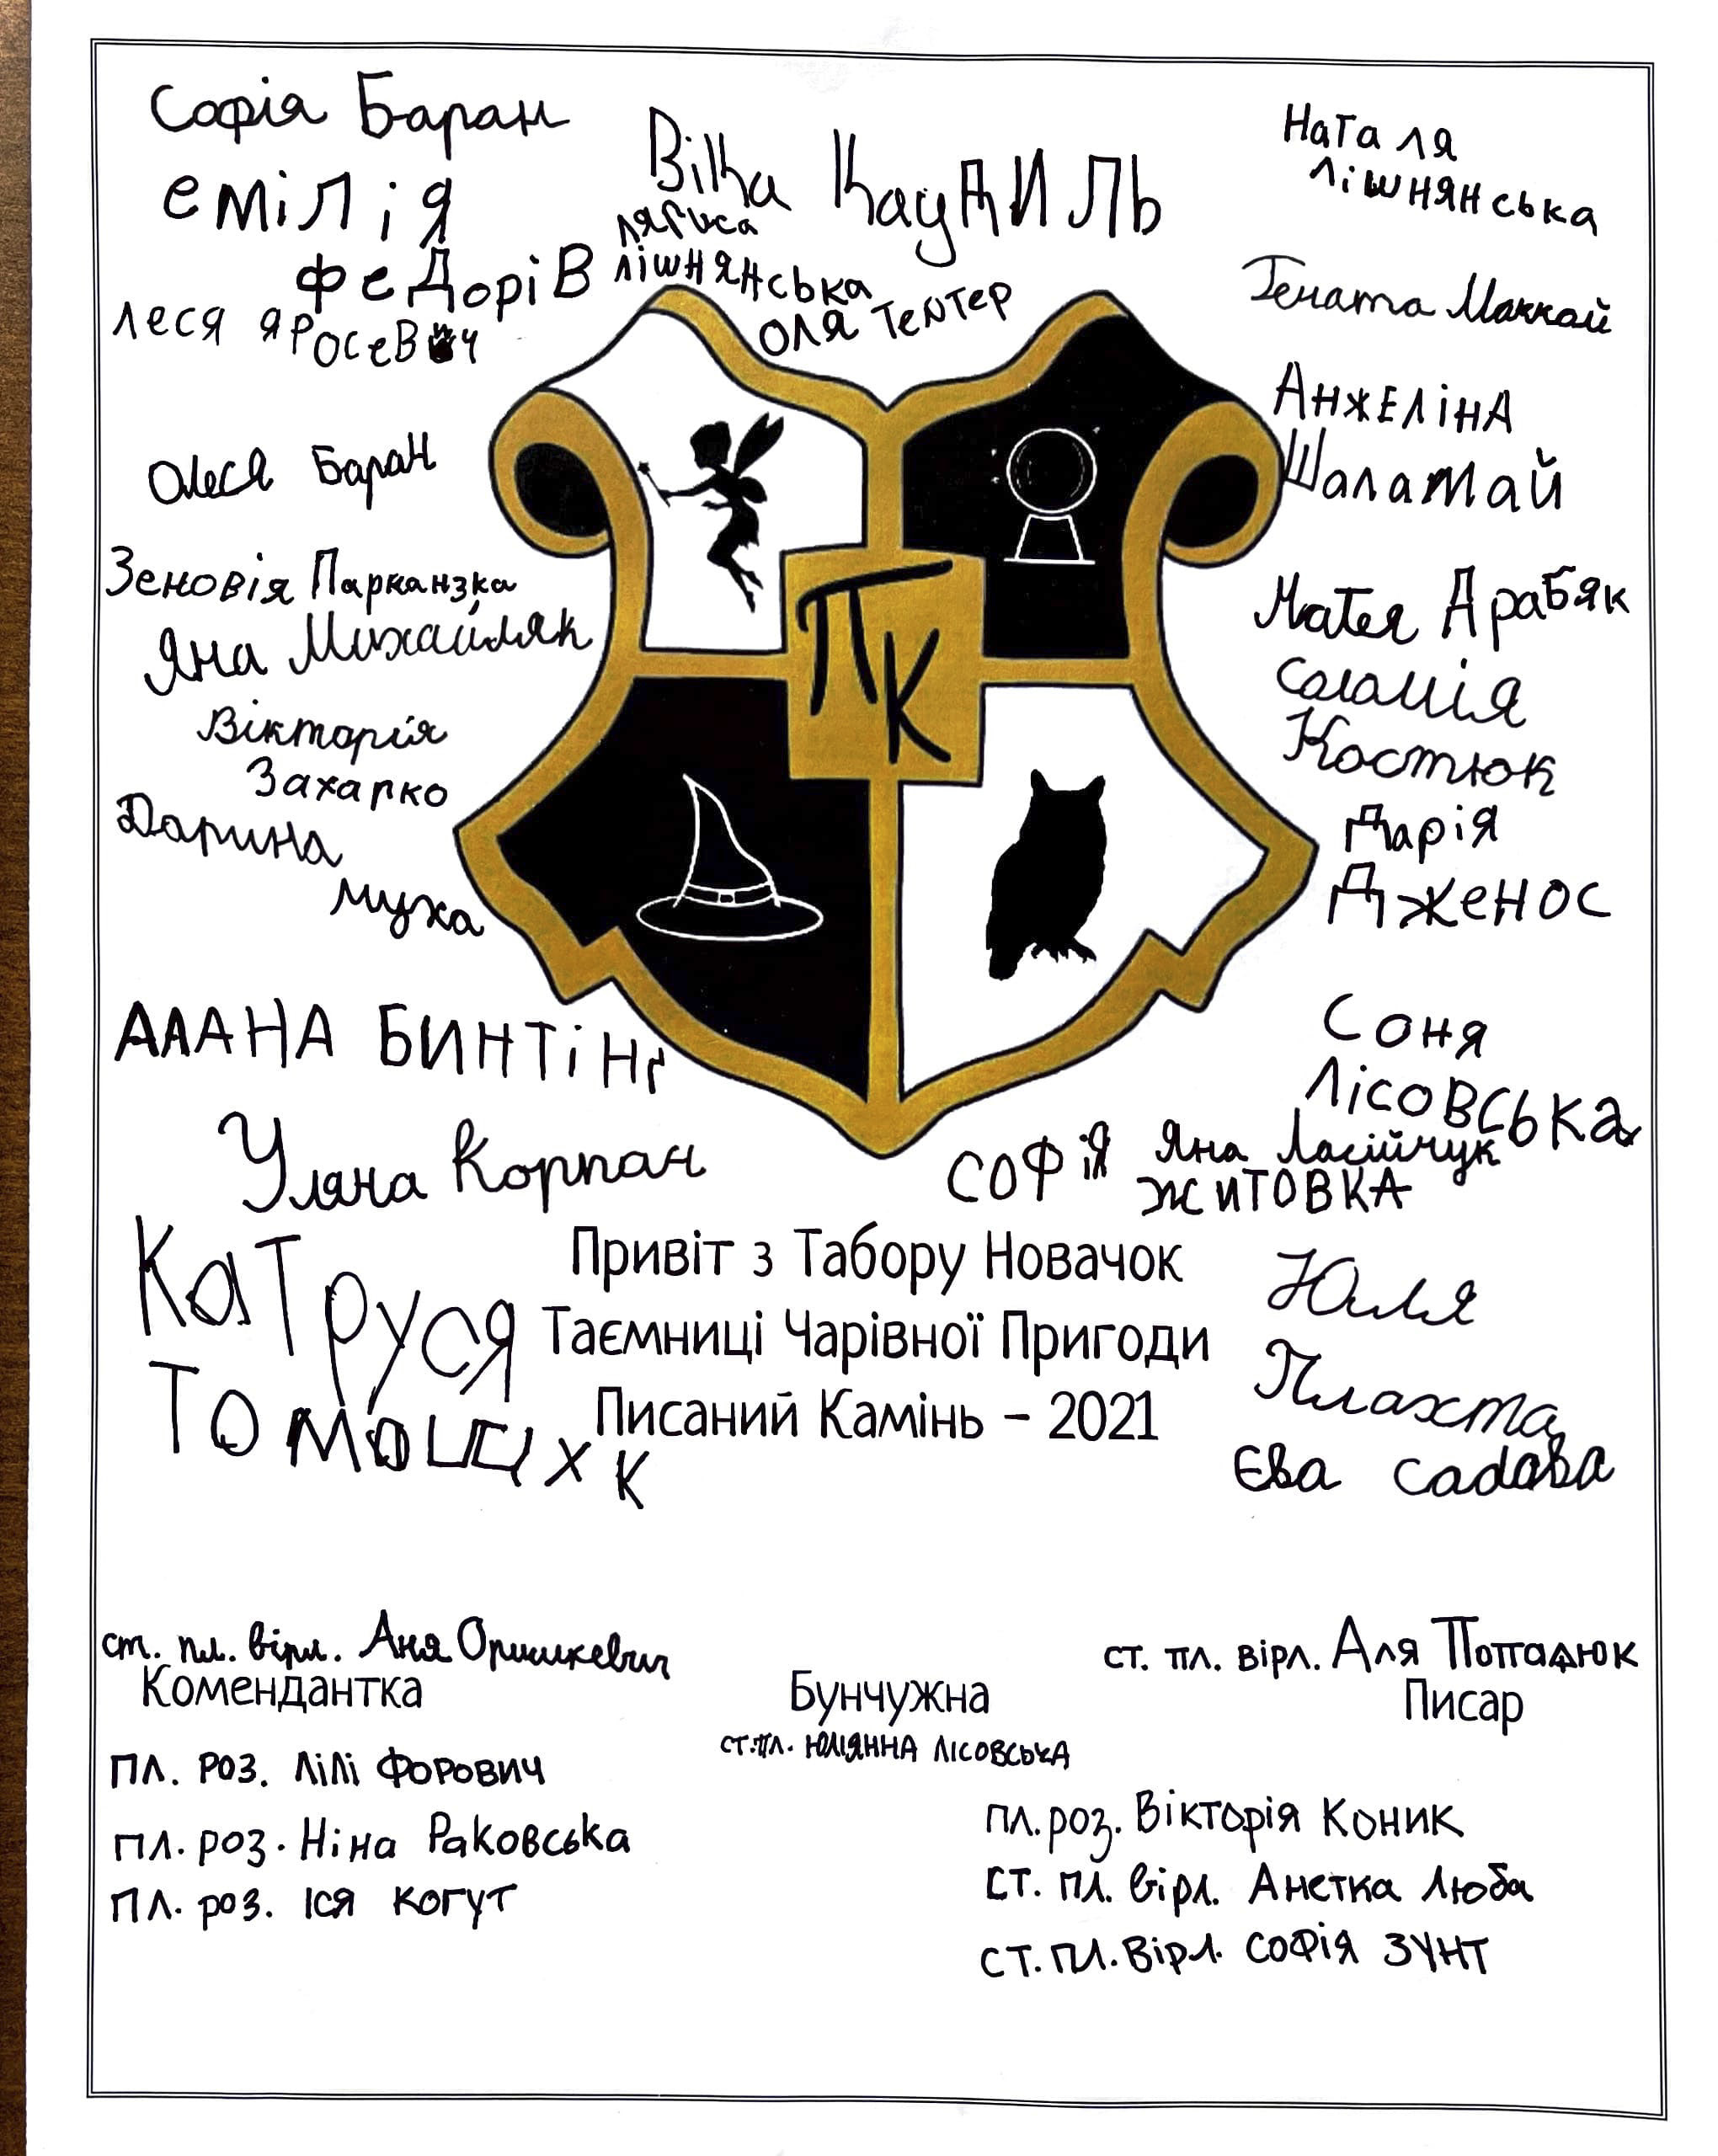 Софія Баран
Віка Кауднль
Наталя
Лішнянська
емілія
Федорів
Ляриса
Лішнянська
Оля Тентер
Леся Яросевич
Рената Маккай
Анжеліна
Шаламай
Олеся Баран
Зеновія Парканзка
Яна Михайляк
Матея Драбяк
Соломія
Костюк
Вікторія
Захарко
Дарина
Муха
Дарія
Дженос
ПК
Алана Бинтінґ
Соня
Лісовська
Уляна Корпан
Софія
Житовка
Яна Ласійчук
Катруся
Привіт з Табору Новачок
Таємниці Чарівної Пригоди
Писаний Камінь – 2021
Юля
Плахта
Єва Садова
ст. пл. вірл. Аня Оришкевич
Комендантка
Бунчужна
ст. пл. Юліянна Лісовська
ст. пл. вірл. Аля Попадюк
Писар
пл. роз. Лілі Форович
пл. роз. Ніна Раковська
пл. роз. Іся Когут
пл. роз. Вікторія Коник
ст. пл. вірл. Анетка Люба
ст. пл. вірл. Софія Зунт